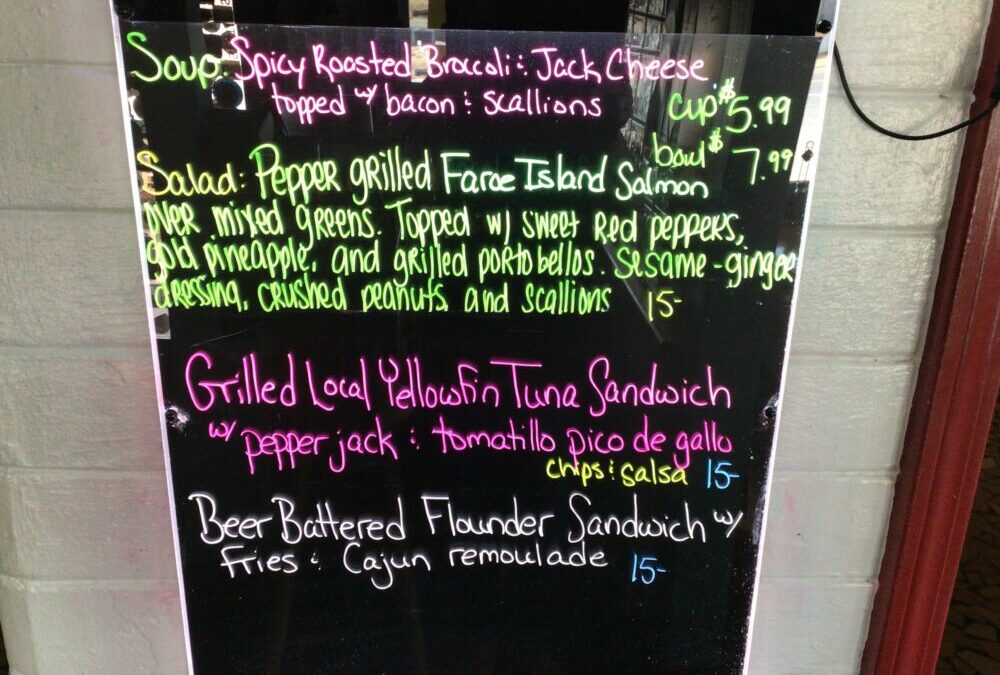 Soup: Spicy Roasted Broccoli & Jack Cheese
topped w/ bacon & scallions
cup $5.99
bowl $7.99
Salad: Pepper grilled Faroe Island Salmon
over mixed greens. Topped w/ sweet red peppers,
gold pineapple, and grilled portobellos. Sesame-ginger
dressing, crushed peanuts, and scallions 15-
Grilled Local Yellowfin Tuna Sandwich
w/ pepper jack & tomatillo pico de gallo
chips & salsa 15-
Beer Battered Flounder Sandwich w/
Fries & Cajun remoulade 15-